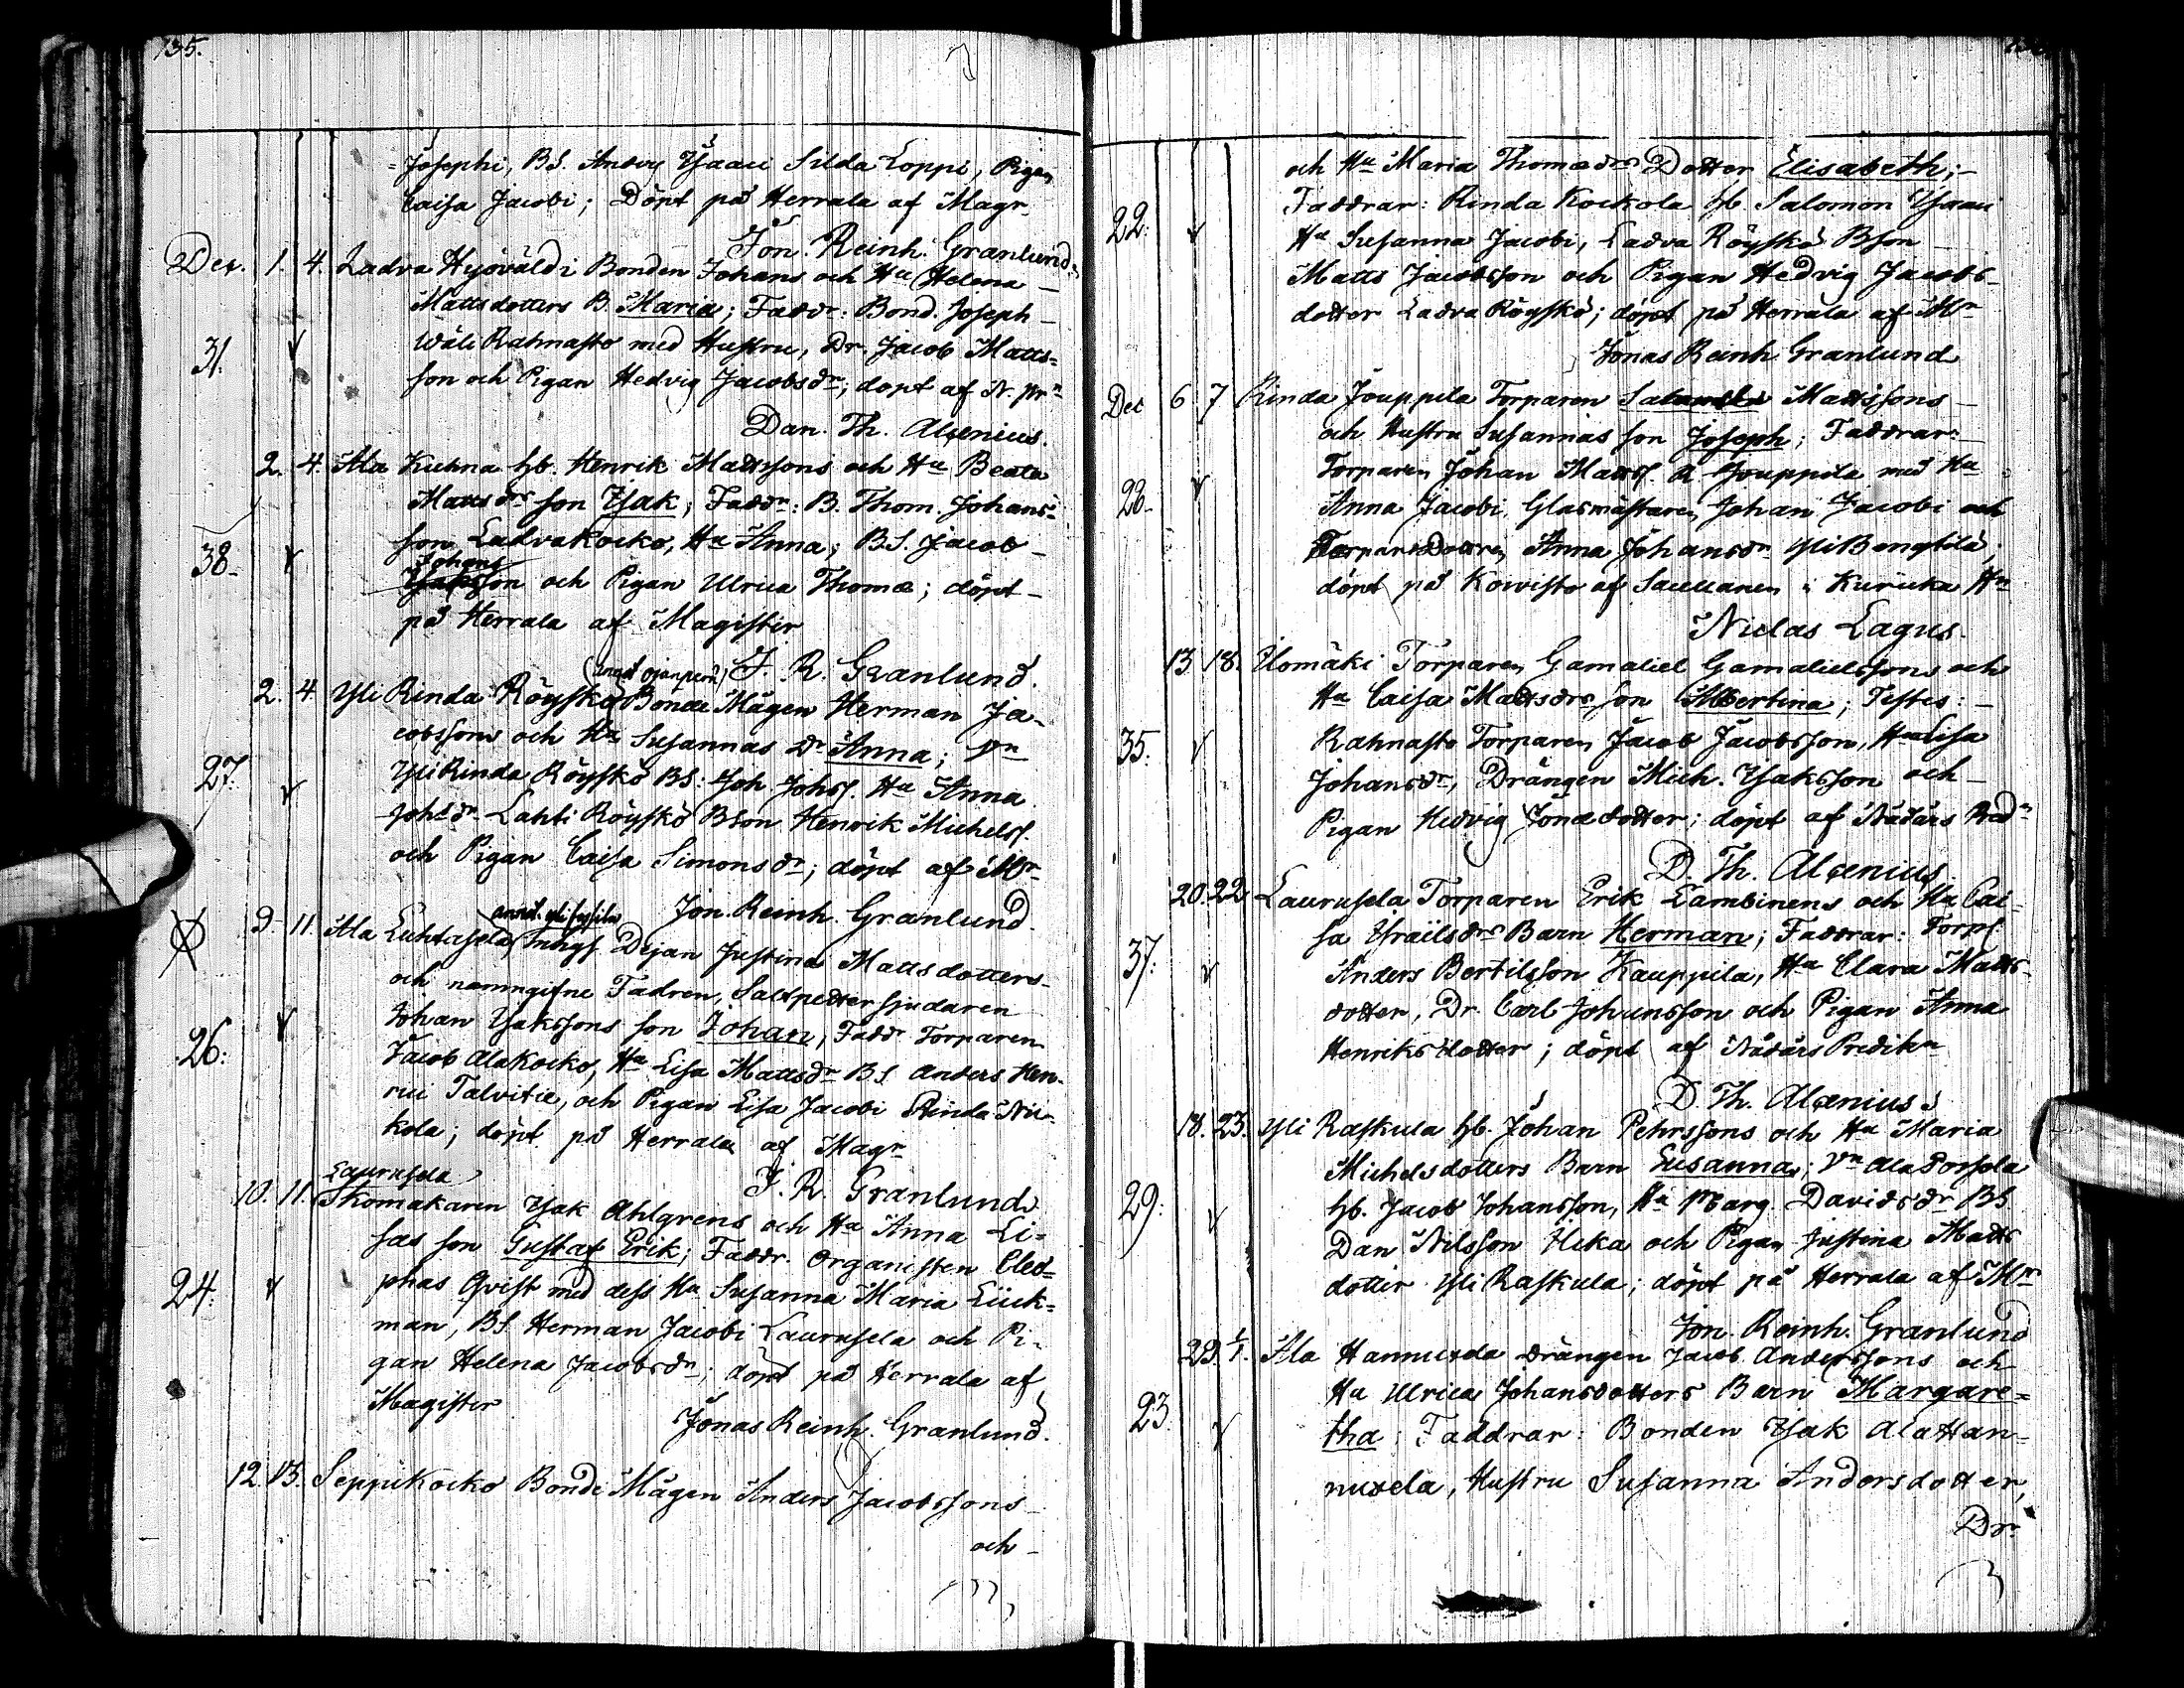 135.
Josephi, BS. Andrs Ysaaci Silda Loppi, Pigan
Caisa Jacobi; Döpt på Herrala af Magr
Jon. Reinh. Granlund.
Dec. 1. 4. Ladva Hyöväldi Bonden Johans och Hu Helena
Mattsdotters B. Maria; Faddr: Bond. Joseph
31. Wäli Rahnasto med Hustru, Dr. Jacob Matts-
son och Pigan Hedvig Jacobsdr; döpt af N. Prn
Dan. Th. Alcenius.
2. 4. Ala Kuhna hb. Henrik Mattssons och Hu Beata
Mattsdrs son Ysak; Faddr: B. Thom. Johans-
son Ladvakocko, Hu Anna; BS. Jacob
38. Johans
Ysaksson och Pigan Ulrica Thomæ; döpt
på Herrala af Magister
J. R. Granlund.
2. 4. Yli Rinda Röyskö Bonde Mågen Herman Ja-
cobssons och Hu Susannas dr Anna; Vn
27. Yli Rinda Röyskö BS: Joh Johss. Hu Anna
Johsdr Lahti Röyskö BSon Henrik Michelss.
och Pigan Caisa Simonsdr; döpt af Mr
Jon. Reinh. Granlund.
9. 11. Ala Luhtasela Inhys Dejan Justina Mattsdotters
och namngifne Fadren, Saltpettersjudaren
Johan Ysakssons son Johan, Faddr Torparen
26: Jacob Alakocko, Hu Lisa Mattsdr BS Anders Hen-
rici Talvitie, och Pigan Lisa Jacobi Rinda Nii-
kola; döpt på Herrala af Magr
J. R. Granlund
Laurusela
10. 11. Skomakaren Ysak Ahlgrens och Hu Anna Li-
sas son Gustaf Erik; Faddr. Organisten Cleo-
24: phas Qvist med dess Hu Susanna Maria Lück-
man, BS. Herman Jacobi Laurusela och Pi-
gan Helena Jacobsdr; döpt på Herrala af
Magister
Jonas Reinh. Granlund.
12. 13. Seppikocko Bonde Mågen Anders Jacobssons
och
och Hu Maria Thomædrs Dotter Elisabeth;
Faddrar: Rinda Kockola hb. Salomon Ysaaci
22: Hu Susanna Jacobi, Ladva Röyskö BSon
Matts Jacobsson och Pigan Hedvig Jacobs-
dotter Ladva Röyskö; döpt på Herrala af Mr
Jonas Reinh. Granlund
Dec 6 7 Rinda Jouppila Torparen Mattssons
och Hustru Susannas son Joseph; Faddrar:
Torparen Johan Mattss. R. Jouppila med Hu
28. Anna Jacobi, Glasmästaren Johan Jacobi och
Torparedottren Anna Johansdr Yli Bengtilä,
döpt på Kowisto af Sacellanen i Kuricka Hr
Niclas Lagus.
13 18. Ilomäki Torparen Gamaliel Gamalielssons och
Hu Caisa Mattsdrs son Albertina; Testes:
35. Rahnasto Torparen Jacob Jacobsson, Hu Lisa
Johansdr, Drängen Mich. Ysaksson och
Pigan Hedvig Jonædotter; döpt af Nådårs Predn
D. Th. Alcenius.
20. 22 Laurusela Torparen Erik Lambinens och Hu Cai-
sa Israilsdrs Barn Herman; Faddrar: Torps
37. Anders Bertilsson Kauppila, Hu Clara Matts-
dotter, Dr. Carl Johansson och Pigan Anna
Henriksdotter; döpt af Nådårs Predikn
D. Th. Alcenius
18. 23. Yli Raskula hb. Johan Pehrssons och Hu Maria
Michelsdotters Barn Susanna; Vn Ala Porsola
29: hb. Jacob Johansson, Hu Marg. Davidsdr BS
Dan Nilsson Ucka och Pigan Justina Matts
dotter Yli Raskula; döpt på Herrala af Mr
Jon. Reinh. Granlund
1/1. Ala Hannuxela drängen Jacob Anderssons och
Hu Ulrica Johansdotters Barn Margare-
23 tha; Faddrar: Bonden Ysak Ala Han-
nuxela, Hustru Susanna Andersdotter,
Dr.